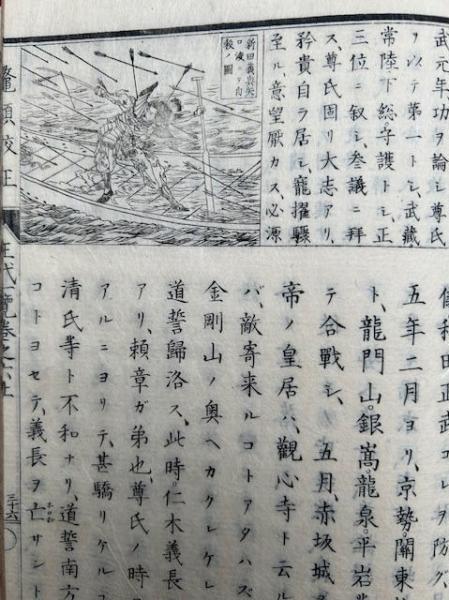 武元年功ヲ論シ尊氏
ヲ以テ第一トシ、武藏
常陸下総守護トシ、正
三位ニ叙シ、参議ニ拜
ス、尊氏固リ大志アリ、
矜貴自ラ居シ、寵擢驟
至ル、意望厭カス、必源
新田義興矢
口渡ニ自
殺ノ圖
和田正武コレヲ防グ、
五年二月ヨリ、京勢關東
ト、龍門山。銀嵩。龍泉平岩
テ合戰シ、五月、赤坂城
帝ノ皇居ハ、觀心寺ト云ル
バ、敵寄来ルコトアタハズ
金剛山ノ奥ヘカクレケレ
道誓歸洛ス、此時仁木義長
アリ、頼章ガ弟也、尊氏ノ時
アルニヨリテ、甚驕リケル
清氏等ト不和ナリ、道誓南方
コトヨセテ、義長ヲ亡サント
鼇頭校正
王代一覧巻之六上
三十六